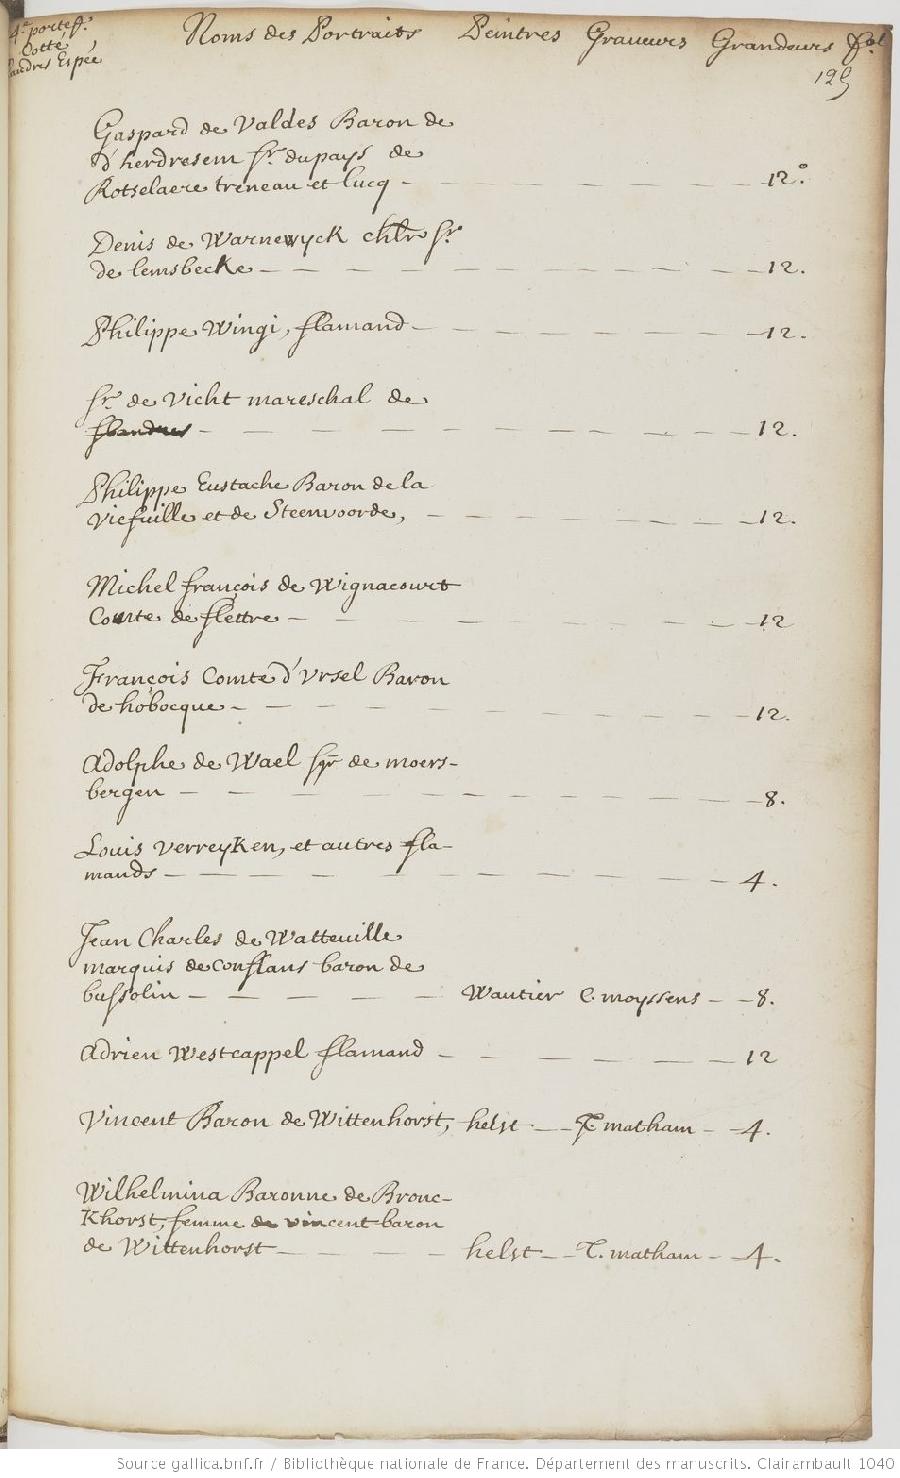 4.e portef.
Cotté
Flandres Espée
Noms des Portraits Peintres Graveurs Grandeurs fol.
125
Gaspard de Valdes Baron de
d'herdresem sr. du pays de
Rotselaere treneau et lucq - 12°.
Denis de Warnewyck chlr sr.
de lemsbecke - 12.
Philippe Wingi, flamand - 12.
sr. de Vicht mareschal de
flandres - 12.
Philippe Eustache Baron de la
Viefville et de Steenvoorde, - 12.
Michel françois de Wignacourt
Comte de flettre - 12
François Comte d'Ursel Baron
de hobocque - 12.
Adolphe de Wael sgr de moers-
bergen - 8.
Louis Verreyken, et autres fla-
mands - 4.
Jean Charles de Watteville
marquis de Conflans baron de
bussolin - Wautier C. moyssens - 8.
Adrien Westcappel flamand - 12
Vincent Baron de Wittenhorst, helst - T. matham - 4.
Wilhelmina Baronne de Bronc-
Khorst, femme de vincent baron
de Wittenhorst - helst - T. matham - 4.
Source gallica.bnf.fr / Bibliothèque nationale de France. Département des manuscrits. Clairambault 1040